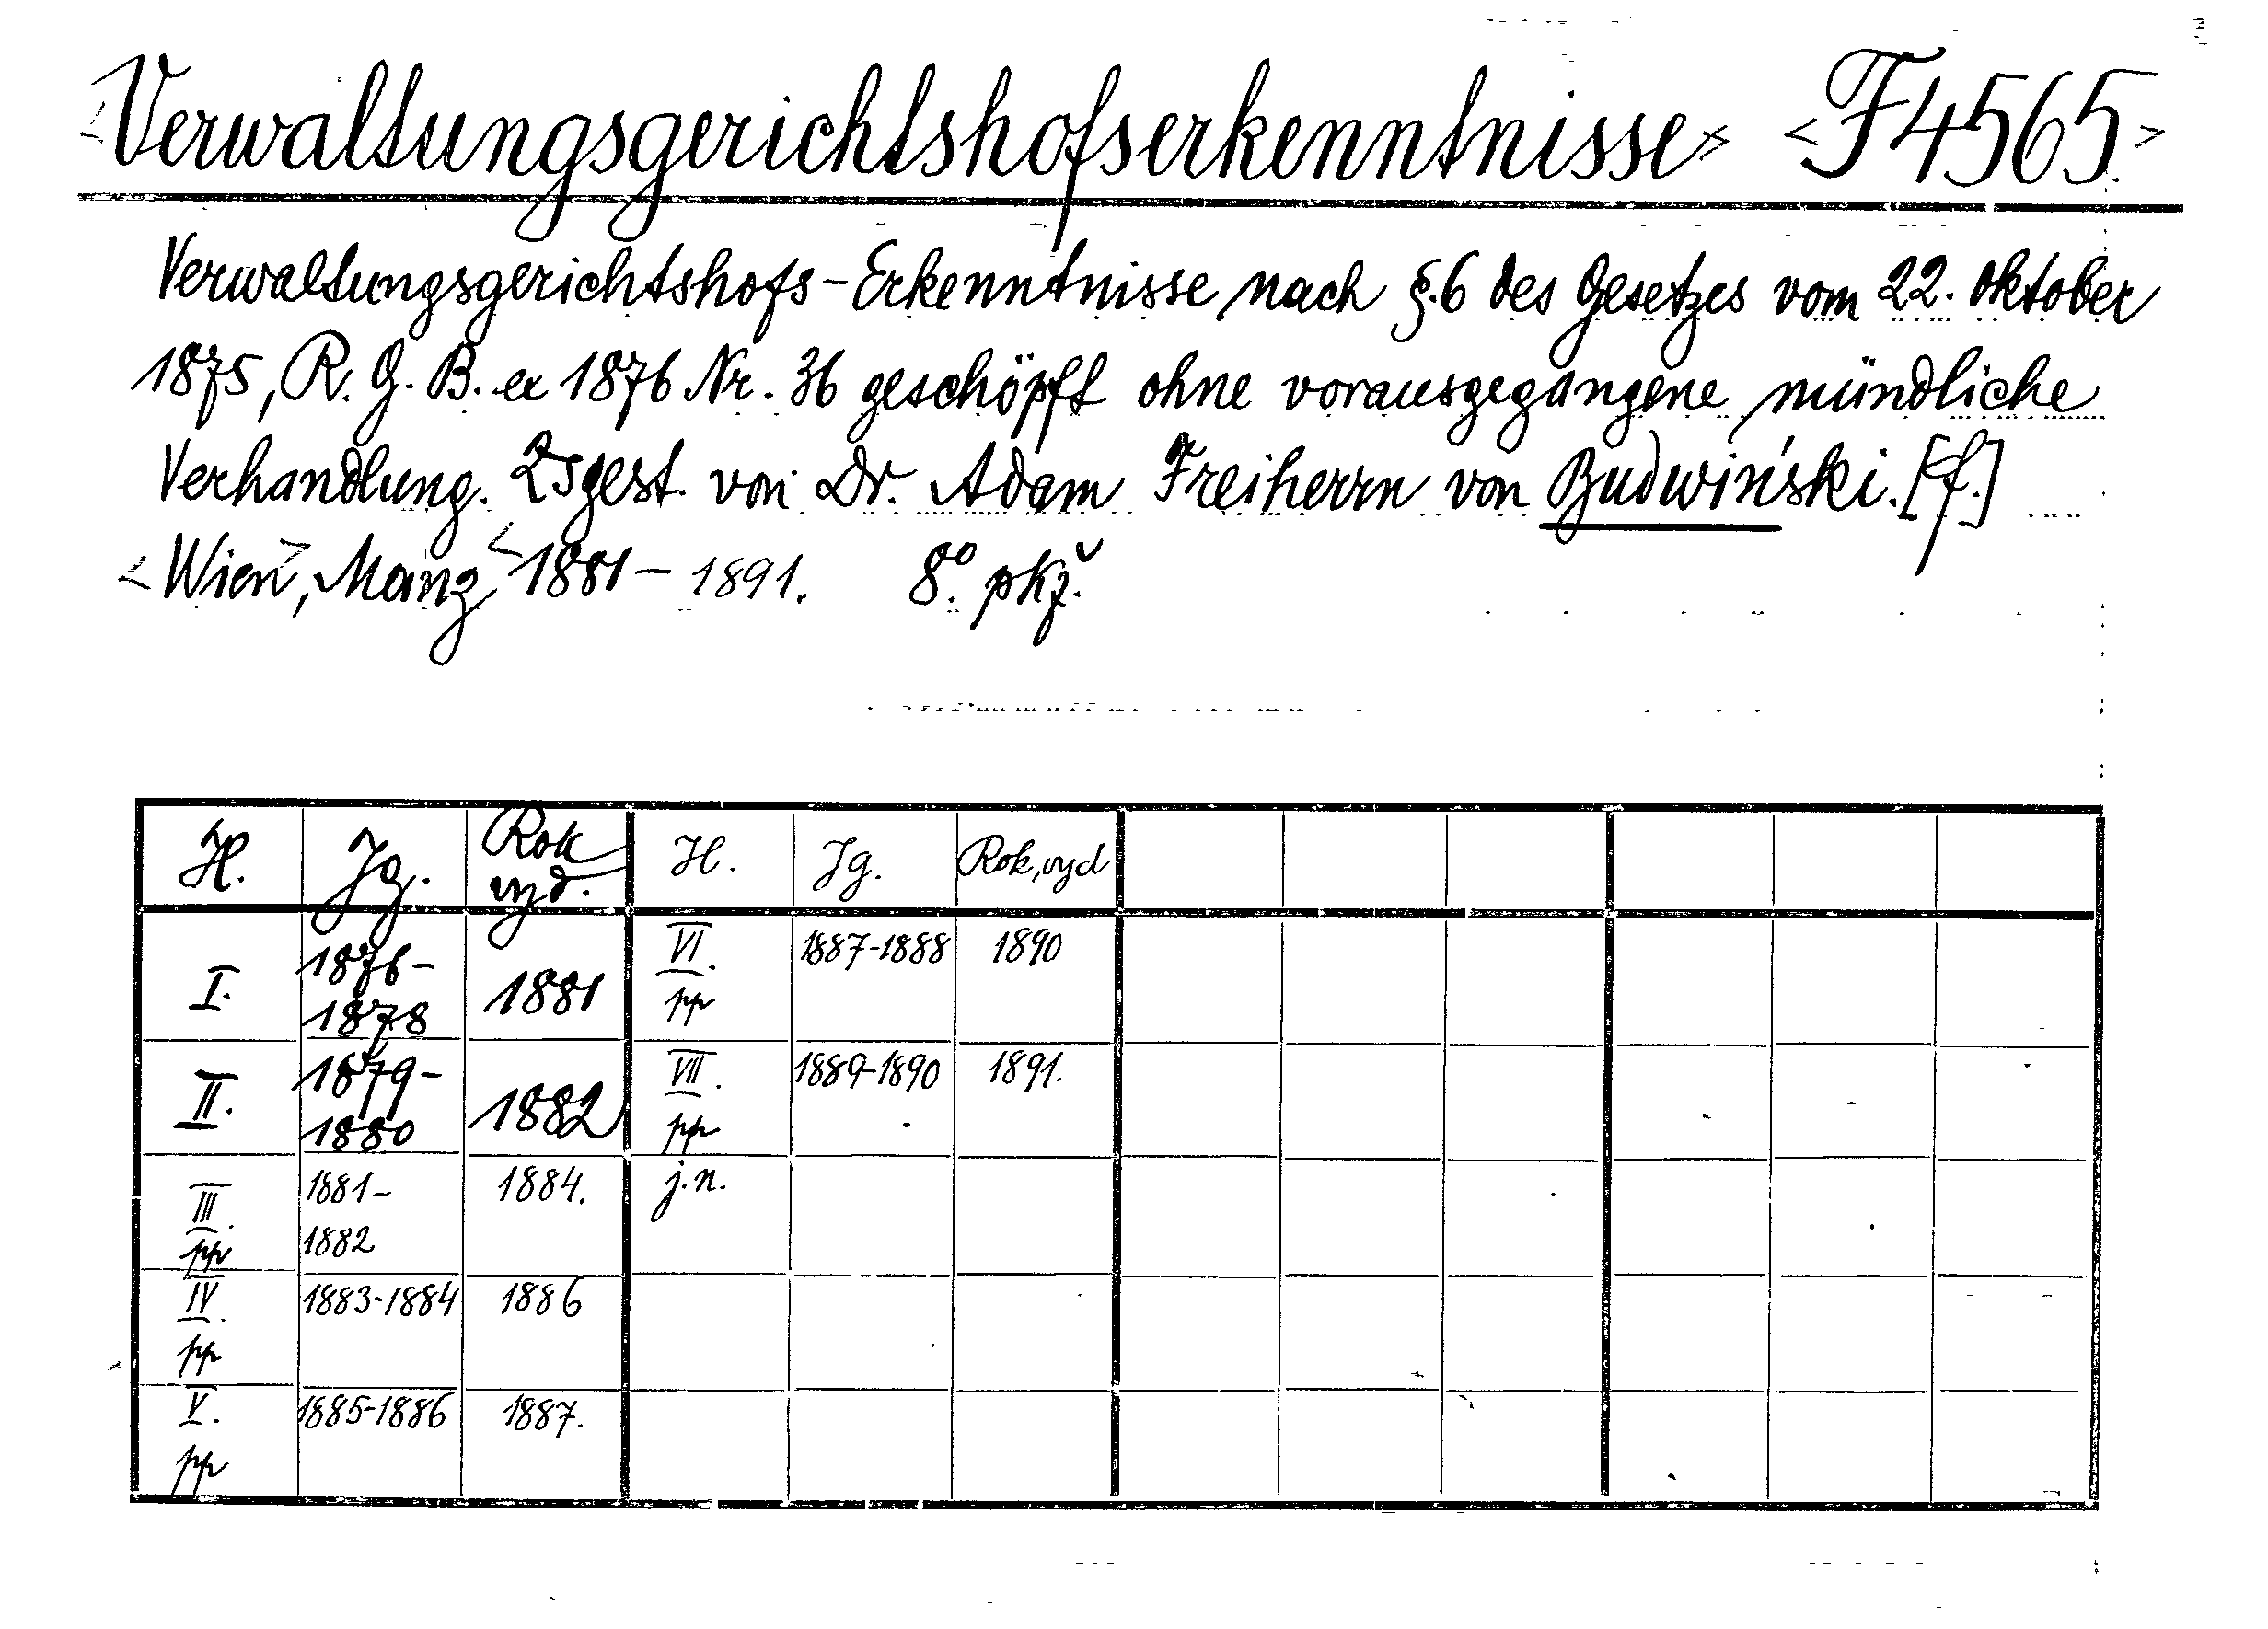 <Verwaltungsgerichtshofserkenntnisse> <F4565>
Verwaltungsgerichtshofs-Erkenntnisse nach §.6 des Gesetzes vom 22. Oktober
1875, R. G. B. ex 1876 Nr. 36 geschöpft ohne vorausgegangene mündliche
Verhandlung. von Dr. Adam Freiherrn von Budwiński. [f.]
<Wien>, Manz <1881- 1891. 8° pkž.
H. Jg. Rok vyd. H. Jg. Rok, vyd
I. 1876-1878 1881 VI. pp 1887-1888 1890
II. 1879-1880 1882 VII. pp 1889-1890 1891.
III. pp 1881-1882 1884. j.n.
IV. pp 1883-1884 1886
V. pp 1885-1886 1887.